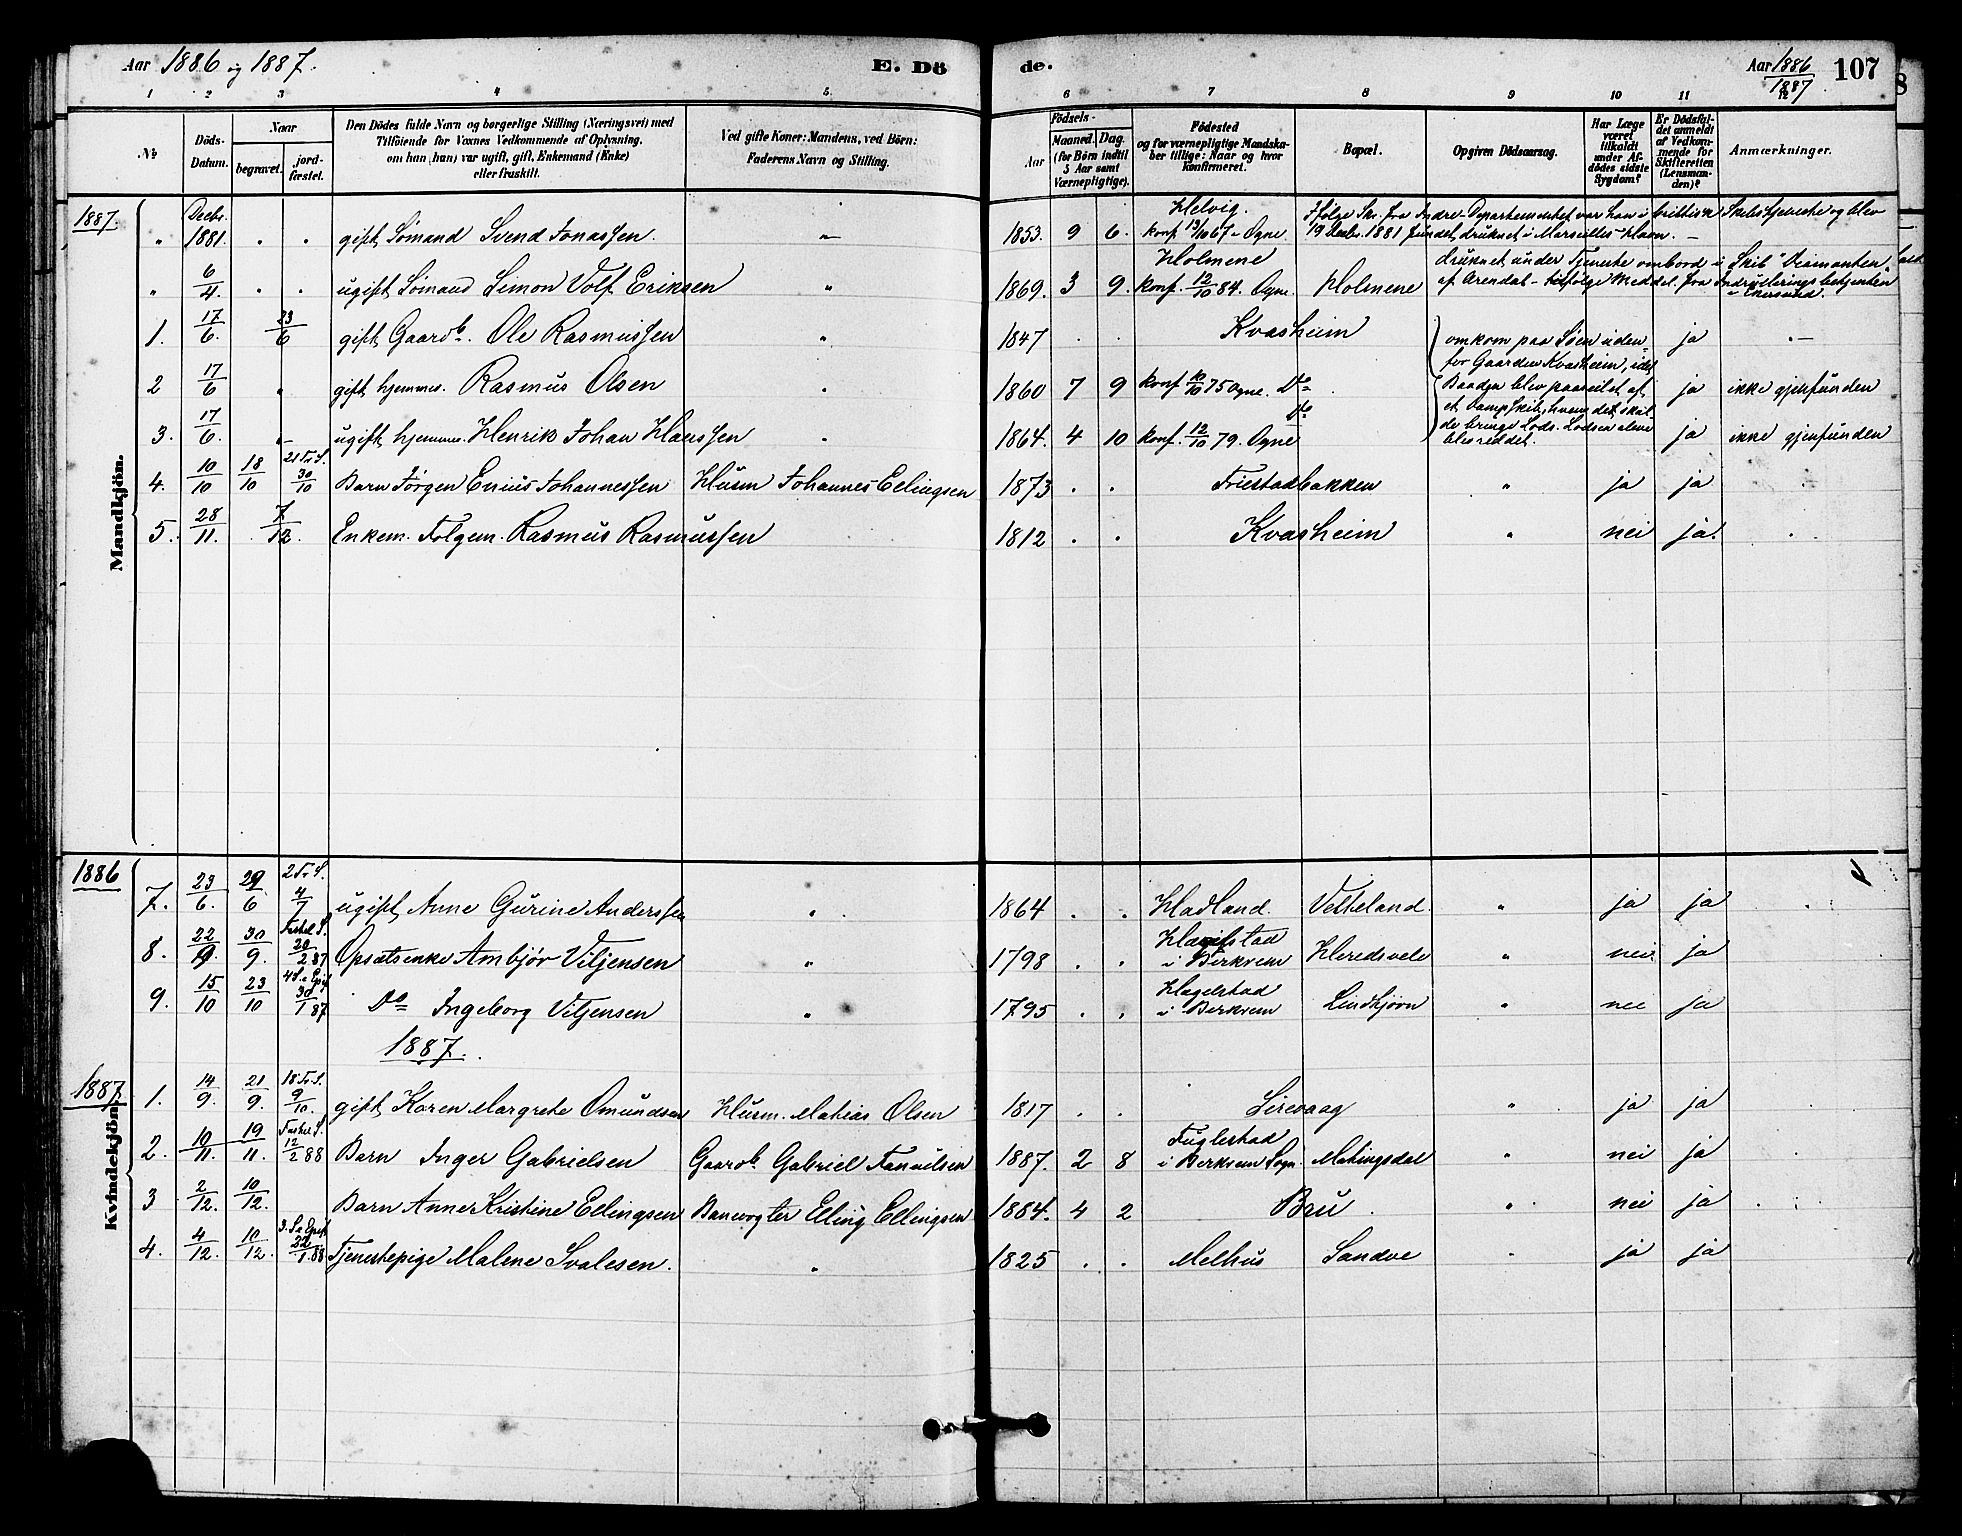 Aar 1886 og 1887.
E. Dö
de.
Aar 1886
1887
107
1 2 3 4 5 6 7 8 9 10 11 12
No
Döds-Datum.
Naar
begravet.
jord-fæstet.
Den Dödes fulde Navn og borgerlige Stilling (Næringsvei) med
Tilföiende for Voxnes Vedkommende af Oplysning,
om han (hun) var ugift, gift, Enkemand (Enke)
eller fraskilt.
Ved gifte Koner: Mandens, ved Börn:
Faderens Navn og Stilling.
Födsels-
Aar
Maaned. Dag.
(for Börn indtil
5 Aar samt
Værnepligtige).
Födested
og for værnepligtige Mandska-
ber tillige: Naar og hvor
konfirmeret.
Bopæl.
Opgiven Dödsaarsag.
Har Læge
været
tilkaldt
under Af-
dödes sidste
Sygdom?
Er Dödsfal-
det anmeldt
af Vedkom-
mende for
Skifteretten
(Lensman-
den)?
Anmærkninger.
Mandkjön.
1887
" Decbr. 1881. " " gift Sømand Svend Jonassen. " 1853. 9 6. Helvig. konf. 67 - Ogne 19 Decbr. 1881 fundet druknet i Marseilles Havn. -
" 6/4 " " ugift Sømand Simon Volf Eriksen " 1869. 3 9. Holmene konf. 12/10 84. Ogne Holmene druknet under Tjeneste ombord i Skib "Diamanten" af Arendal - tilfølge Meddel. fra
1. 17/6. 23/6 gift Gaardb. Ole Rasmussen " 1847 . . Kvasheim omkom paa Søen uden- ja " -
2 17/6 " gift hjemmev. Rasmus Olsen " 1860 7 9 konf 75 Ogne. Do for Gaarden Kvasheim, idet Baaden blev paaseilet af ja ikke gjenfunden
3. 17/6. " - ugift hjemmev. Henrik Johan Hanssen " 1864. 4 10 konf. 12/10 79. Ogne Do et Dampskib, hvem det skul- de bringe Lods. Lodsen alene blev reddet. ja ikke gjenfunden
4. 10/10 18/10 21 Tr. S. 30/10 Barn Jørgen Enius Johannessen Husm Johannes Ellingsen 1873 . . Friestadbakken " ja ja
5. 28/11. 7/12. Enkem. Folgem. Rasmus Rasmussen 1812 . . Kvasheim " nei ja.
Kvindekjön.
1886
7. 23/6. 29/6 2 Tr. S. 4/7 ugift Anne Gurine Anderssen " 1864 . . Hadland. Vetteland. " ja ja
8. 22/9. 30/9. Fastel. S. 20/2 87 Opsatsenke Ambjør Viljensen " 1798 . . i Birkrem " nei ja
9. 15/10 23/10 4 S. e Epif. 30/1 87 Do Ingeborg Viljensen " 1795 . . Hegelstad i Birkrem Lindtjørn " nei ja
1887.
1887
1. 14/9. 21/9. 18 Tr. S. 9/10. gift Karen Margrete Omundsen Husm. Mathias Olsen 1817 . . Sirevaag " ja ja
2. 10/11. 19/11. Fastel S. 12/2 88 Barn Inger Gabrielsen Gaardb. Gabriel 1887. 2 8 Fuglestad i Birkrem Sogn. Matingsdal " nei ja
3 2/12. 10/12. Barn Anne Kristine Ellingsen Banevogter Elling Ellingsen 1884. 4 2 Bru " nei ja
4. 4/12. 10/12. 3. S. e Epif. 22/1 88 Tjenestepige Malene Svalesen. " 1825 . . Melhus Sandve " ja ja